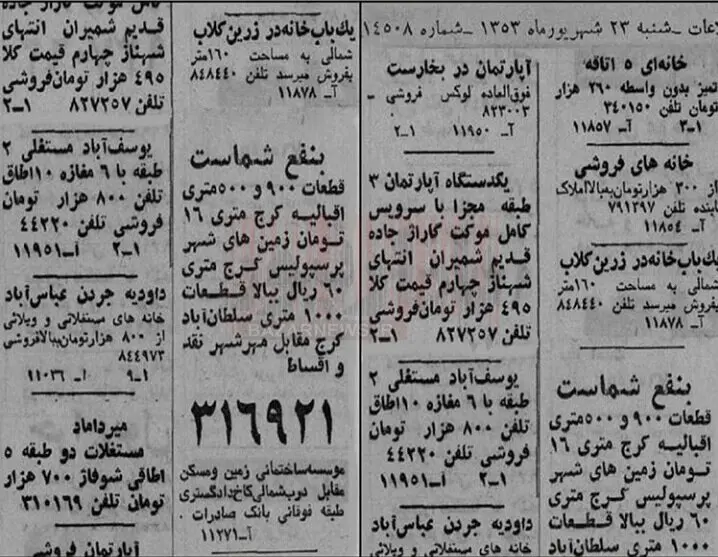 عات ـ شنبه ۲۳ شهریورماه ۱۳۵۳ ـ شماره ۱۴۵۰۸
خانه‌ای ۵ اتاقه
تمیز بدون واسطه ۲۶۰ هزار
تومان تلفن ۳۴۰۱۵۰
۳ـ۱ آـ ۱۱۸۵۷
خانه های فروشی
از ۳۰۰ هزارتومان‌ببالااملاک
اینده تلفن ۷۹۱۳۹۷
آـ ۱۱۸۵۴
یك‌باب‌خانه‌در زرین‌کلاب
شمالی به مساحت ۱۶۰متر
بفروش میرسد تلفن ۸۴۸۴۴۰
آـ ۱۱۸۷۸
بنفع شماست
قطعات ۹۰۰ و ۵۰۰متری
اقبالیه کرج متری ۱۶
تومان زمین های شهر
پرسپولیس کرج متری
۶۰ ریال ببالا قطعات
۱۰۰۰ متری سلطان‌آباد
آپارتمان در بخارست
فوق‌العاده لوکس فروشی ـ
۸۲۳۰۰۳
۲ـ۱ آـ ۱۱۹۵۰
یکدستگاه آپارتمان ۳
طبقه مجزا با سرویس
کامل موکت گاراژ جاده
قدیم شمیران انتهای
شهناز چهارم قیمت کلا
۴۹۵ هزار تومان‌فروشی
تلفن ۸۲۷۲۵۷ ۲ـ۱
یوسف‌آباد مستغلی ۲
طبقه با ۶ مغازه ۱۰اطاق
تلفن ۸۰۰ هزار تومان
فروشی تلفن ۴۴۲۲۰
۲ـ۱ آـ۱۱۹۵۱
داودیه جردن عباس‌آباد
خانه های مستغلاتی و ویلائی
یك‌باب‌خانه‌در زرین‌کلاب
شمالی به مساحت ۱۶۰متر
بفروش میرسد تلفن ۸۴۸۴۴۰
آـ ۱۱۸۷۸
بنفع شماست
قطعات ۹۰۰ و ۵۰۰متری
اقبالیه کرج متری ۱۶
تومان زمین های شهر
پرسپولیس کرج متری
۶۰ ریال ببالا قطعات
۱۰۰۰ متری سلطان‌آباد
کرج مقابل مهرشهر نقد
و اقساط
۳۱۶۹۲۱
موسسه‌ساختمانی زمین ومسکن
مقابل درب‌شمالی‌کاخ‌دادگستری
طبقه فوقانی بانک صادرات ـ
آـ۱۱۲۷۱
کامل موکت گاراژ جاده
قدیم شمیران انتهای
شهناز چهارم قیمت کلا
۴۹۵ هزار تومان‌فروشی
تلفن ۸۲۷۲۵۷ ۲ـ۱
یوسف‌آباد مستغلی ۲
طبقه با ۶ مغازه ۱۰اطاق
تلفن ۸۰۰ هزار تومان
فروشی تلفن ۴۴۲۲۰
۲ـ۱ آـ۱۱۹۵۱
داودیه جردن عباس‌آباد
خانه های مستغلاتی و ویلائی
از ۸۰۰ هزارتومان‌ببالافروشی
۸۴۴۹۷۳
۹ـ۱ آـ ۱۱۰۳۶
میرداماد
مستغلات دو طبقه ۵
اطاقی شوفاژ ۷۰۰ هزار
تومان تلفن ۳۱۰۱۶۹
آپارتمان فروشی